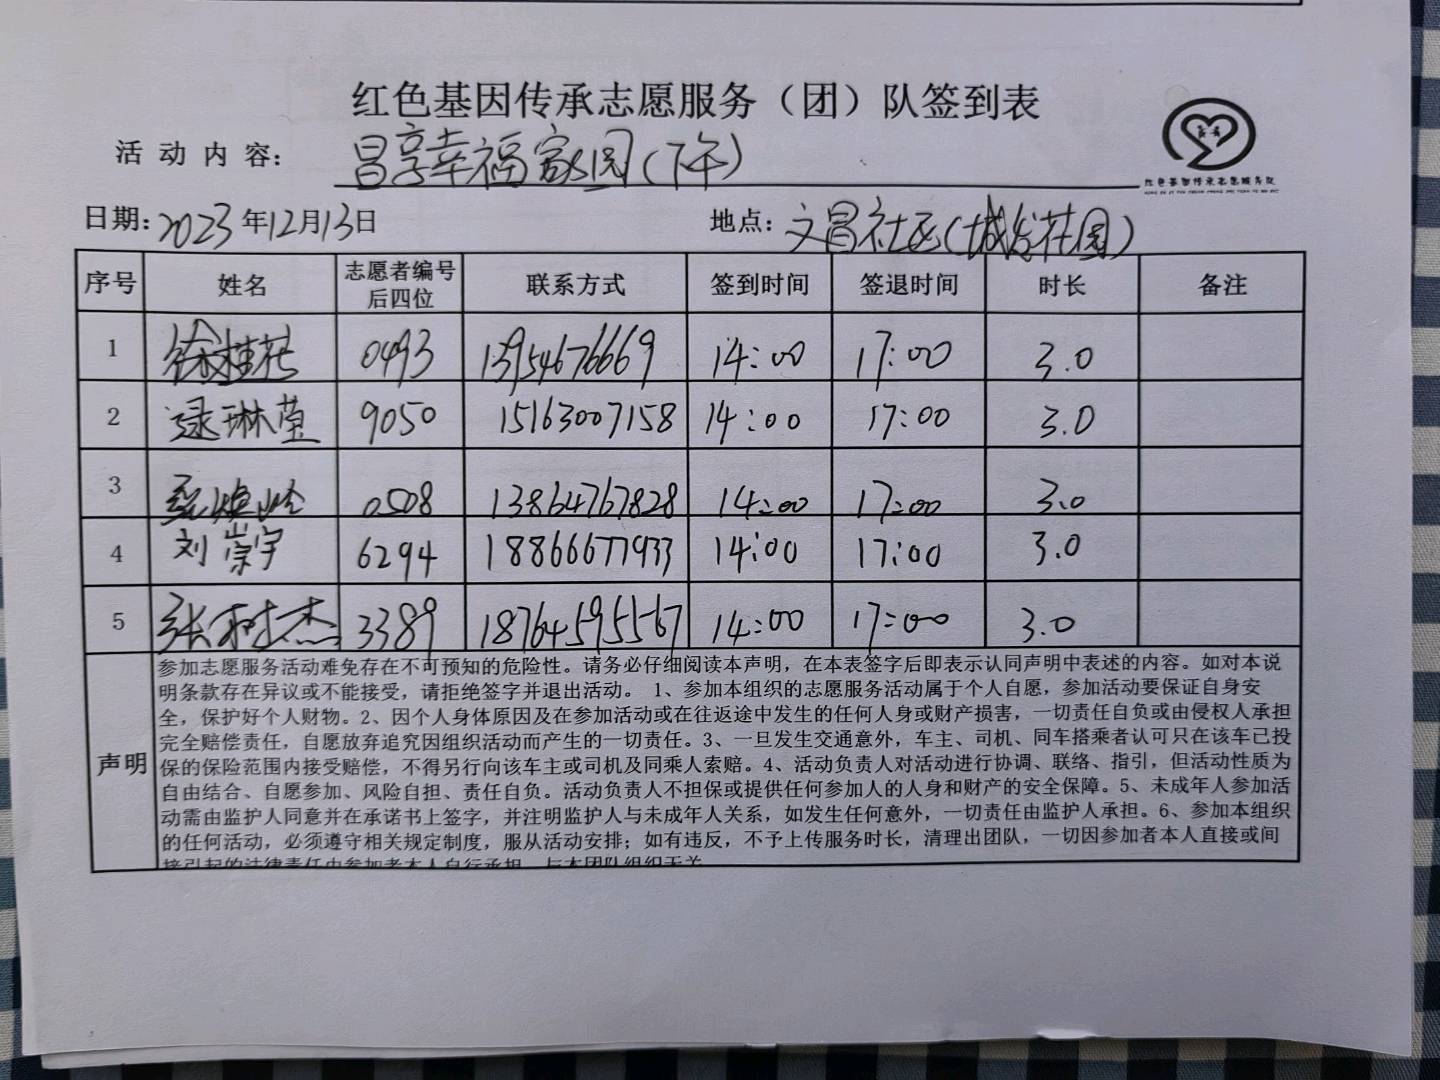 红色基因传承志愿服务（团）队签到表
活动内容：昌享幸福家园(下午)
日期：2023年12月13日 地点：文昌社区(城发花园)
红色基因传承志愿服务队
序号 姓名 志愿者编号后四位 联系方式 签到时间 签退时间 时长 备注
1 徐桂花 0493 13954676669 14:00 17:00 3.0
2 逯琳莹 9050 15163007158 14:00 17:00 3.0
3 0508 13864767828 14:00 17:00 3.0
4 刘崇宇 6294 18866677933 14:00 17:00 3.0
5 张树杰 3389 18764595567 14:00 17:00 3.0
声明
参加志愿服务活动难免存在不可预知的危险性。请务必仔细阅读本声明，在本表签字后即表示认同声明中表述的内容。如对本说
明条款存在异议或不能接受，请拒绝签字并退出活动。 1、参加本组织的志愿服务活动属于个人自愿，参加活动要保证自身安
全，保护好个人财物。2、因个人身体原因及在参加活动或在往返途中发生的任何人身或财产损害，一切责任自负或由侵权人承担
完全赔偿责任，自愿放弃追究因组织活动而产生的一切责任。3、一旦发生交通意外，车主、司机、同车搭乘者认可只在该车已投
保的保险范围内接受赔偿，不得另行向该车主或司机及同乘人索赔。4、活动负责人对活动进行协调、联络、指引，但活动性质为
自由结合、自愿参加、风险自担、责任自负。活动负责人不担保或提供任何参加人的人身和财产的安全保障。5、未成年人参加活
动需由监护人同意并在承诺书上签字，并注明监护人与未成年人关系，如发生任何意外，一切责任由监护人承担。6、参加本组织
的任何活动，必须遵守相关规定制度，服从活动安排；如有违反，不予上传服务时长，清理出团队，一切因参加者本人直接或间
接引起的法律责任由参加者本人自行承担，与本团队组织无关